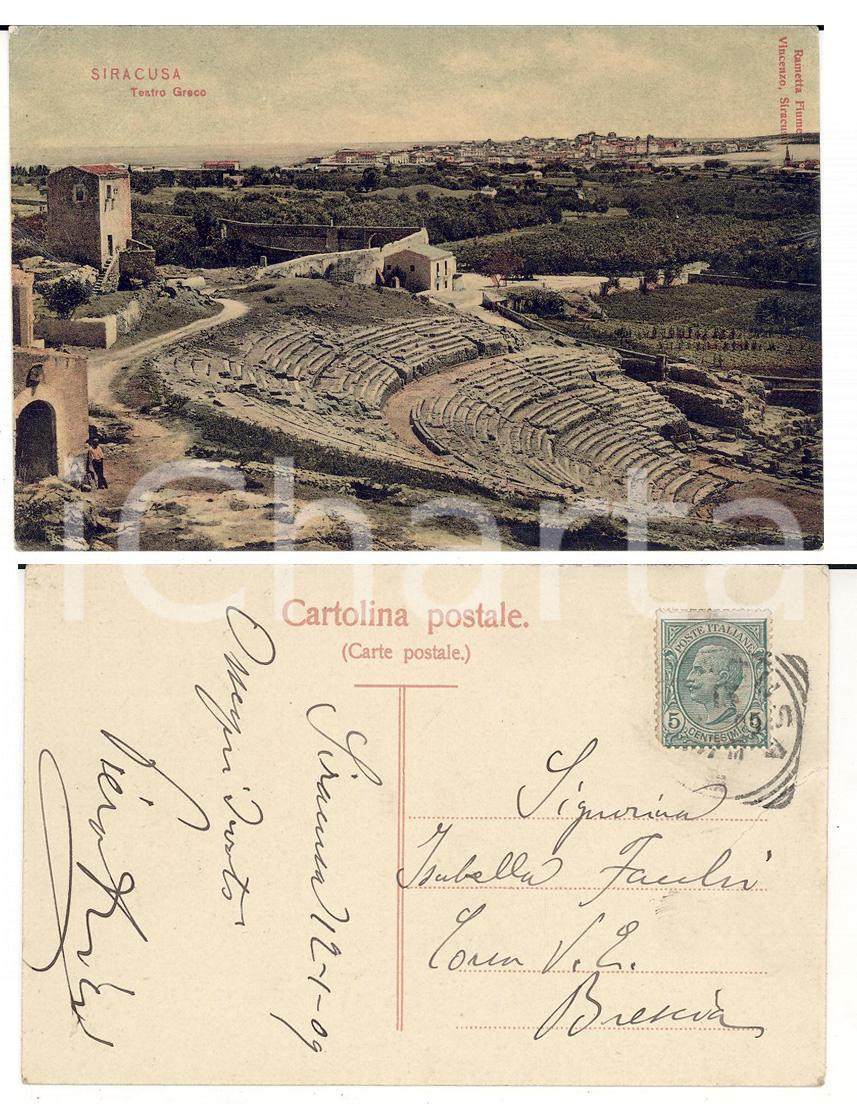 SIRACUSA
Teatro Greco
Rametta Fiume
Vincenzo, Siracu
iCharta
Cartolina postale.
(Carte postale.)
POSTE ITALIANE
5 5
CENTESIMI
Siracusa 12-1-09
Ossequi
Signorina
Isabella
Corso V. E.
Brescia